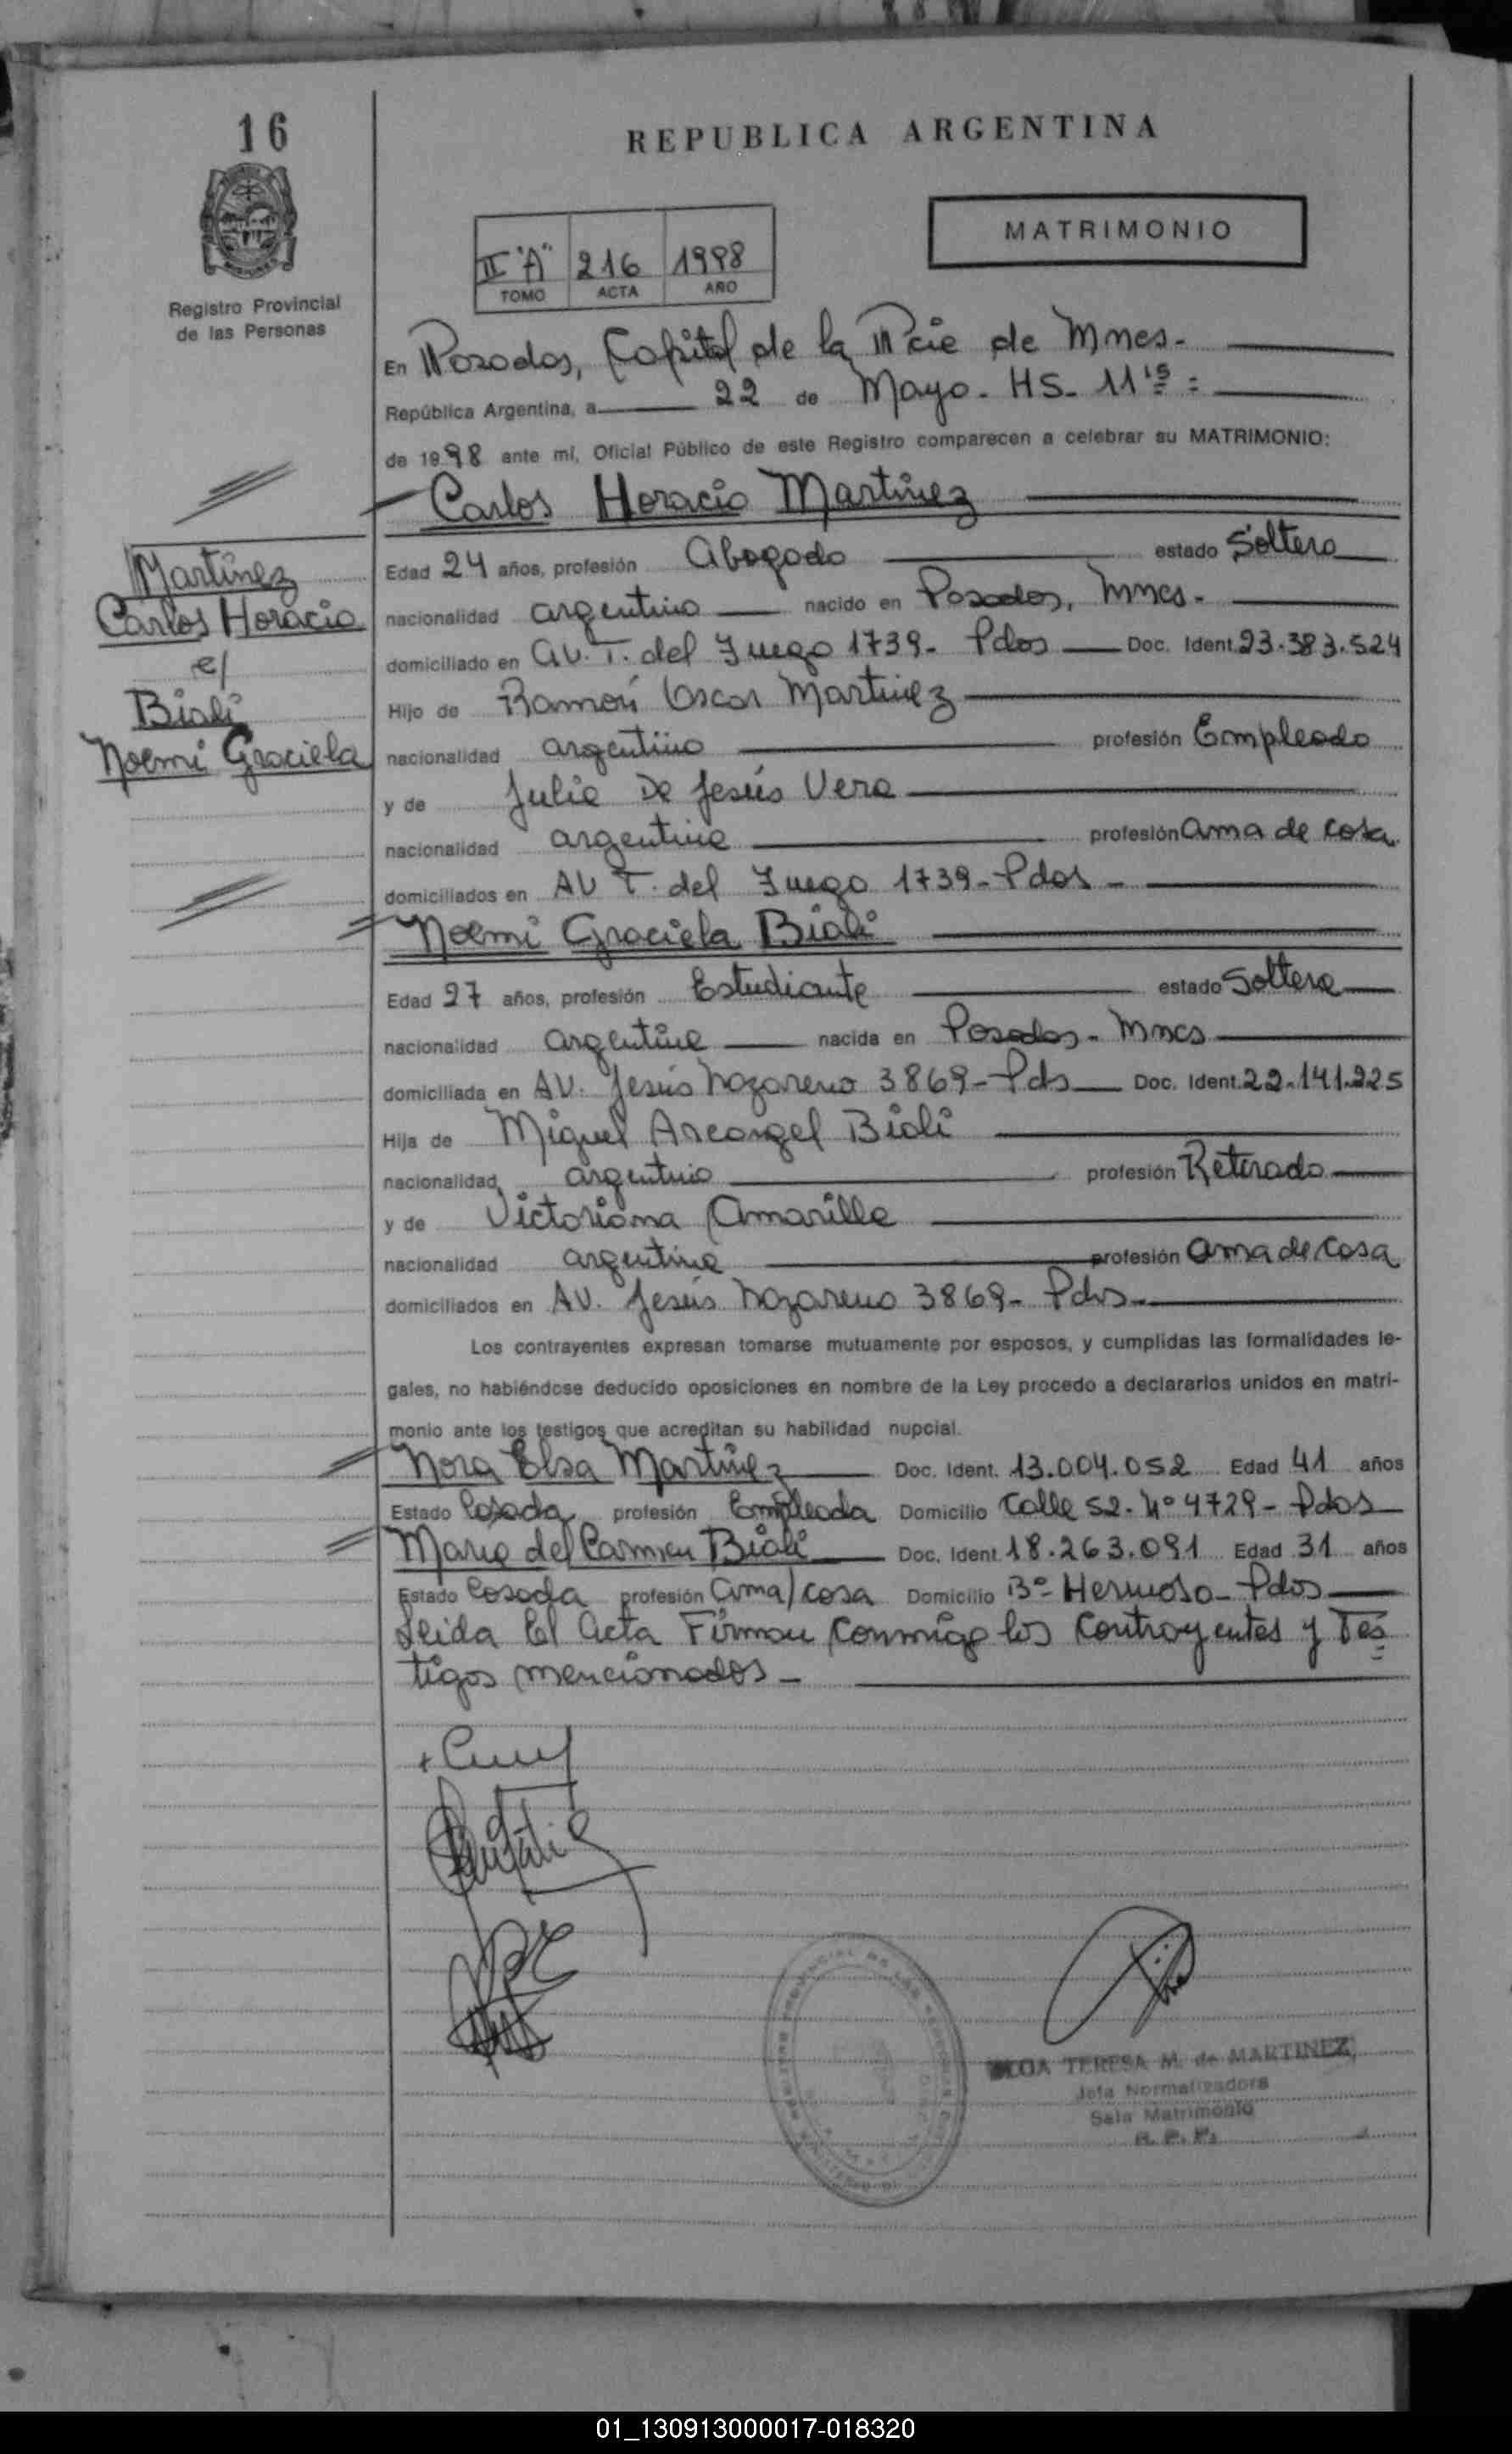 16
REPUBLICA ARGENTINA
MATRIMONIO
II "A" 216 1998
TOMO ACTA AÑO
Registro Provincial
de las Personas
En Posadas, Capital de la Pcie de Mnes.
República Argentina, a 22 de Mayo. HS. 11 15 =
de 1998 ante mí, Oficial Público de este Registro comparecen a celebrar su MATRIMONIO:
Carlos Horacio Martinez
Martinez
Carlos Horacio
c/
Biali
Noemi Graciela
Edad 24 años, profesión Abogado estado Soltero
nacionalidad argentino nacido en Posadas, Mnes.
domiciliado en AV. T. del Fuego 1739. Pdas Doc. Ident. 23.383.524
Hijo de Ramón Oscar Martinez
nacionalidad argentino profesión Empleado
y de Julia De Jesús Vera
nacionalidad argentina profesión ama de casa
domiciliados en AV T. del Fuego 1739 - Pdas -
Noemi Graciela Biali
Edad 27 años, profesión Estudiante estado Soltera
nacionalidad argentina nacida en Posadas - Mnes
domiciliada en AV. Jesús Nazareno 3869 - Pds Doc. Ident. 22.141.225
Hija de Miguel Arcangel Biali
nacionalidad argentino profesión Retirado
y de Victoriana Amarilla
nacionalidad argentina profesión ama de Casa
domiciliados en AV. Jesús Nazareno 3869 - Pdas
Los contrayentes expresan tomarse mutuamente por esposos, y cumplidas las formalidades le-
gales, no habiéndose deducido oposiciones en nombre de la Ley procedo a declararlos unidos en matri-
monio ante los testigos que acreditan su habilidad nupcial.
Nora Elsa Martinez Doc. Ident. 13.004.052 Edad 41 años
Estado Casada profesión Empleada Domicilio Calle 52. Nº 4729 - Pdas
Maria del Carmen Biali Doc. Ident. 18.263.091 Edad 31 años
Estado Casada profesión Ama/casa Domicilio Bº Hermoso - Pdas
Leida El Acta Firman Conmigo los Contrayentes y Tes
tigos mencionados -
TERESA M. de MARTINEZ
Jefa Normalizadora
Sala Matrimonio
R. P. P.
01_130913000017-018320